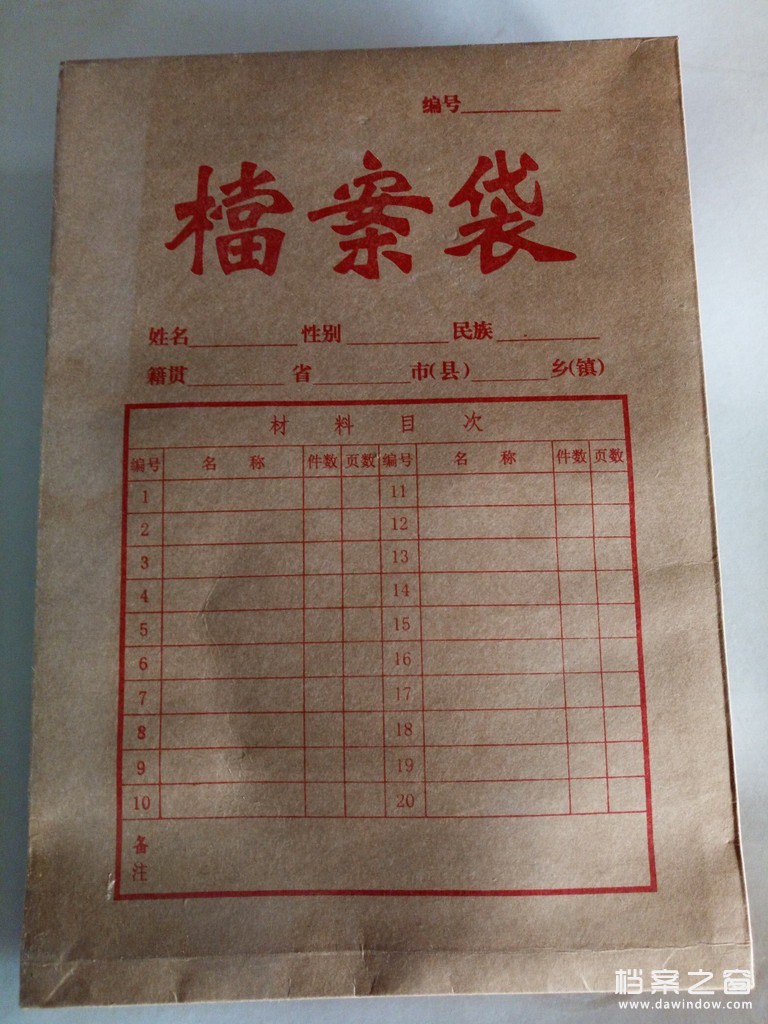 编号__________
檔案袋
姓名__________ 性别__________ 民族__________
籍贯__________ 省__________ 市(县)________ 乡(镇)
材料目次
编号 名称 件数 页数 编号 名称 件数 页数
1 11
2 12
3 13
4 14
5 15
6 16
7 17
8 18
9 19
10 20
备注
档案之窗
www.dawindow.com